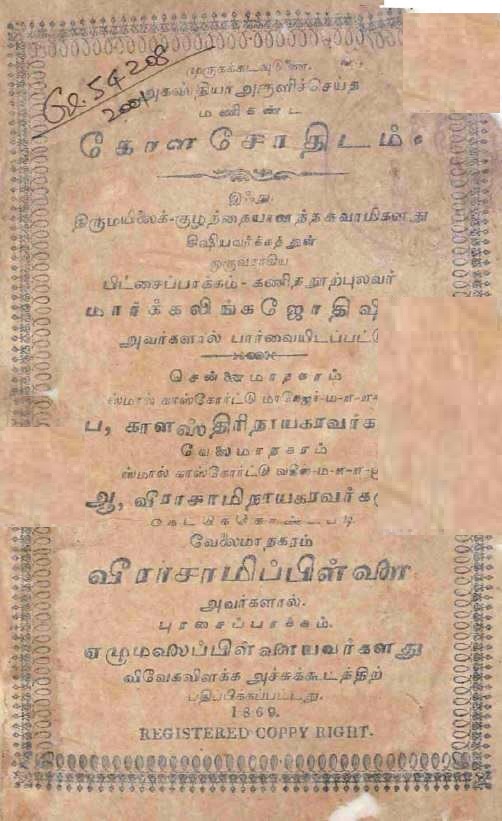 கோ.54208
2001
முருகக்கடவுடுணை.
அகஸ்தியர் அருளிச்செய்த
மணிகண்ட
கோளசோதிடம்.
இஃது
திருமயிலைக்-குழந்தையாநந்தசுவாமிகளது
சிஷியவர்க்கத்துள்
முருவராகிய
பிட்சைப்பாக்கம்-கணிதநூற்புலவர்
மார்க்கலிங்கஜோதிஷ
அவர்களால் பார்வையிடப்பட்டு
சென்னைமாநகரம்
ஸ்மால் காஸ்கோர்ட்டு மானேஜர்-ம-ள-ள-
ப, காளஸ்திரிநாயகரவர்க
வேலைமாநகரம்
ஸ்மால் காஸ்கோர்ட்டு வகீல்-ம-ள-ள-
ஆ, வீராசாமிநாயகரவர்க
கேட்டுக்கொண்டபடி
வேலைமாநகரம்
வீராசாமிப்பிள்ளை
அவர்களால்.
புரசைப்பாக்கம்.
ஏழுமலைப்பிள்ளையவர்களது
விவேகவிளக்க அச்சுக்கூடத்திற்
பதிப்பிக்கப்பட்டது.
1869.
REGISTERED COPPY RIGHT.